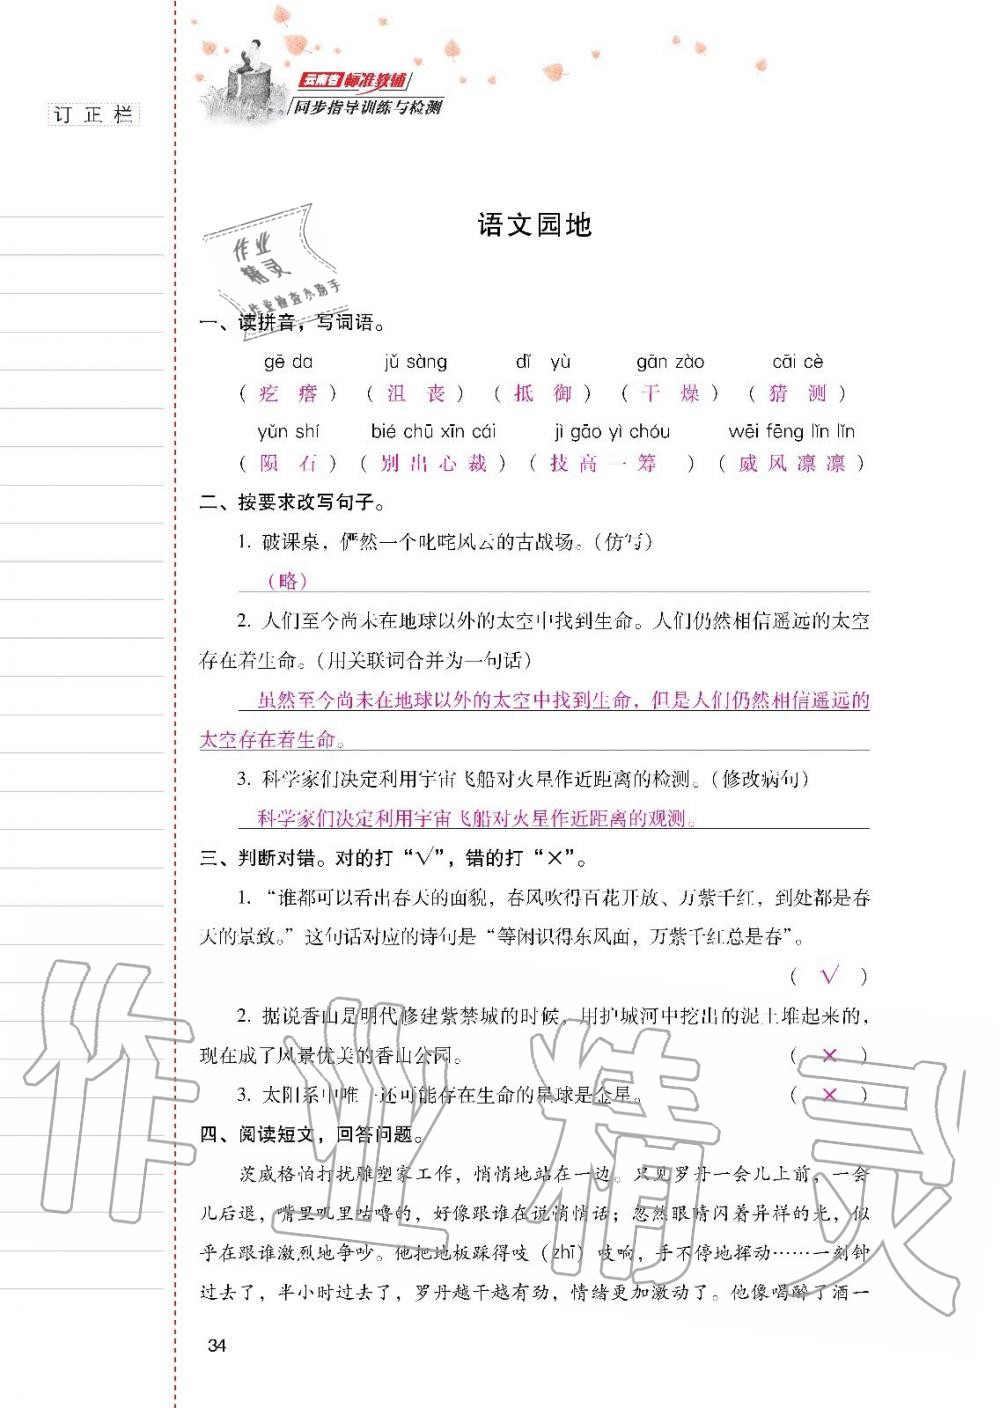 云南省标准教辅
同步指导训练与检测
订正栏
语文园地
作业
精灵
作业检查小助手
一、读拼音，写词语。
gē da jǔ sàng dǐ yù gān zào cāi cè
（疙瘩）（沮丧）（抵御）（干燥）（猜测）
yǔn shí bié chū xīn cái jì gāo yì chóu wēi fēng lǐn lǐn
（陨石）（别出心裁）（技高一筹）（威风凛凛）
二、按要求改写句子。
1. 破课桌，俨然一个叱咤风云的古战场。（仿写）
（略）
2. 人们至今尚未在地球以外的太空中找到生命。人们仍然相信遥远的太空
存在着生命。（用关联词合并为一句话）
虽然至今尚未在地球以外的太空中找到生命，但是人们仍然相信遥远的
太空存在着生命。
3. 科学家们决定利用宇宙飞船对火星作近距离的检测。（修改病句）
科学家们决定利用宇宙飞船对火星作近距离的观测。
三、判断对错。对的打“√”，错的打“×”。
1. “谁都可以看出春天的面貌，春风吹得百花开放、万紫千红，到处都是春
天的景致。”这句话对应的诗句是“等闲识得东风面，万紫千红总是春”。
（ √ ）
2. 据说香山是明代修建紫禁城的时候，用护城河中挖出的泥土堆起来的，
现在成了风景优美的香山公园。（ × ）
3. 太阳系中唯一还可能存在生命的星球是金星。（ × ）
四、阅读短文，回答问题。
茨威格怕打扰雕塑家工作，悄悄地站在一边。只见罗丹一会儿上前，一会
儿后退，嘴里叽里咕噜的，好像跟谁在说悄悄话；忽然眼睛闪着异样的光，似
乎在跟谁激烈地争吵。他把地板踩得吱（zhī）吱响，手不停地挥动……一刻钟
过去了，半小时过去了，罗丹越干越有劲，情绪更加激动了。他像喝醉了酒一
34
作业精灵